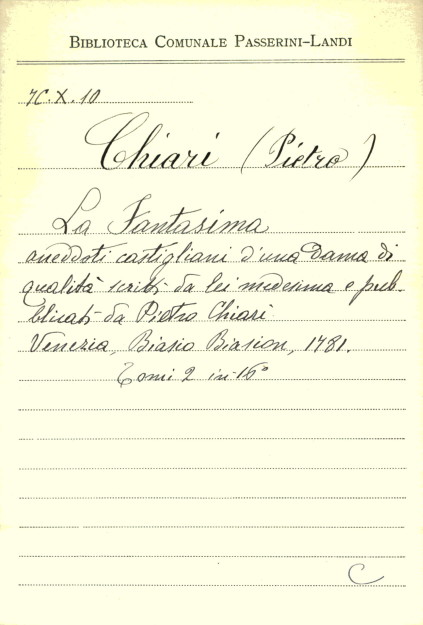 BIBLIOTECA COMUNALE PASSERINI-LANDI
7C.X.10
Chiari (Pietro)
La Fantasima
aneddoti castigliani d'una Dama di
qualità scritti da lei medesima e pub-
blicati da Pietro Chiari
Venezia, Biasio Biasion, 1781.
Tomi 2 in-16°
C